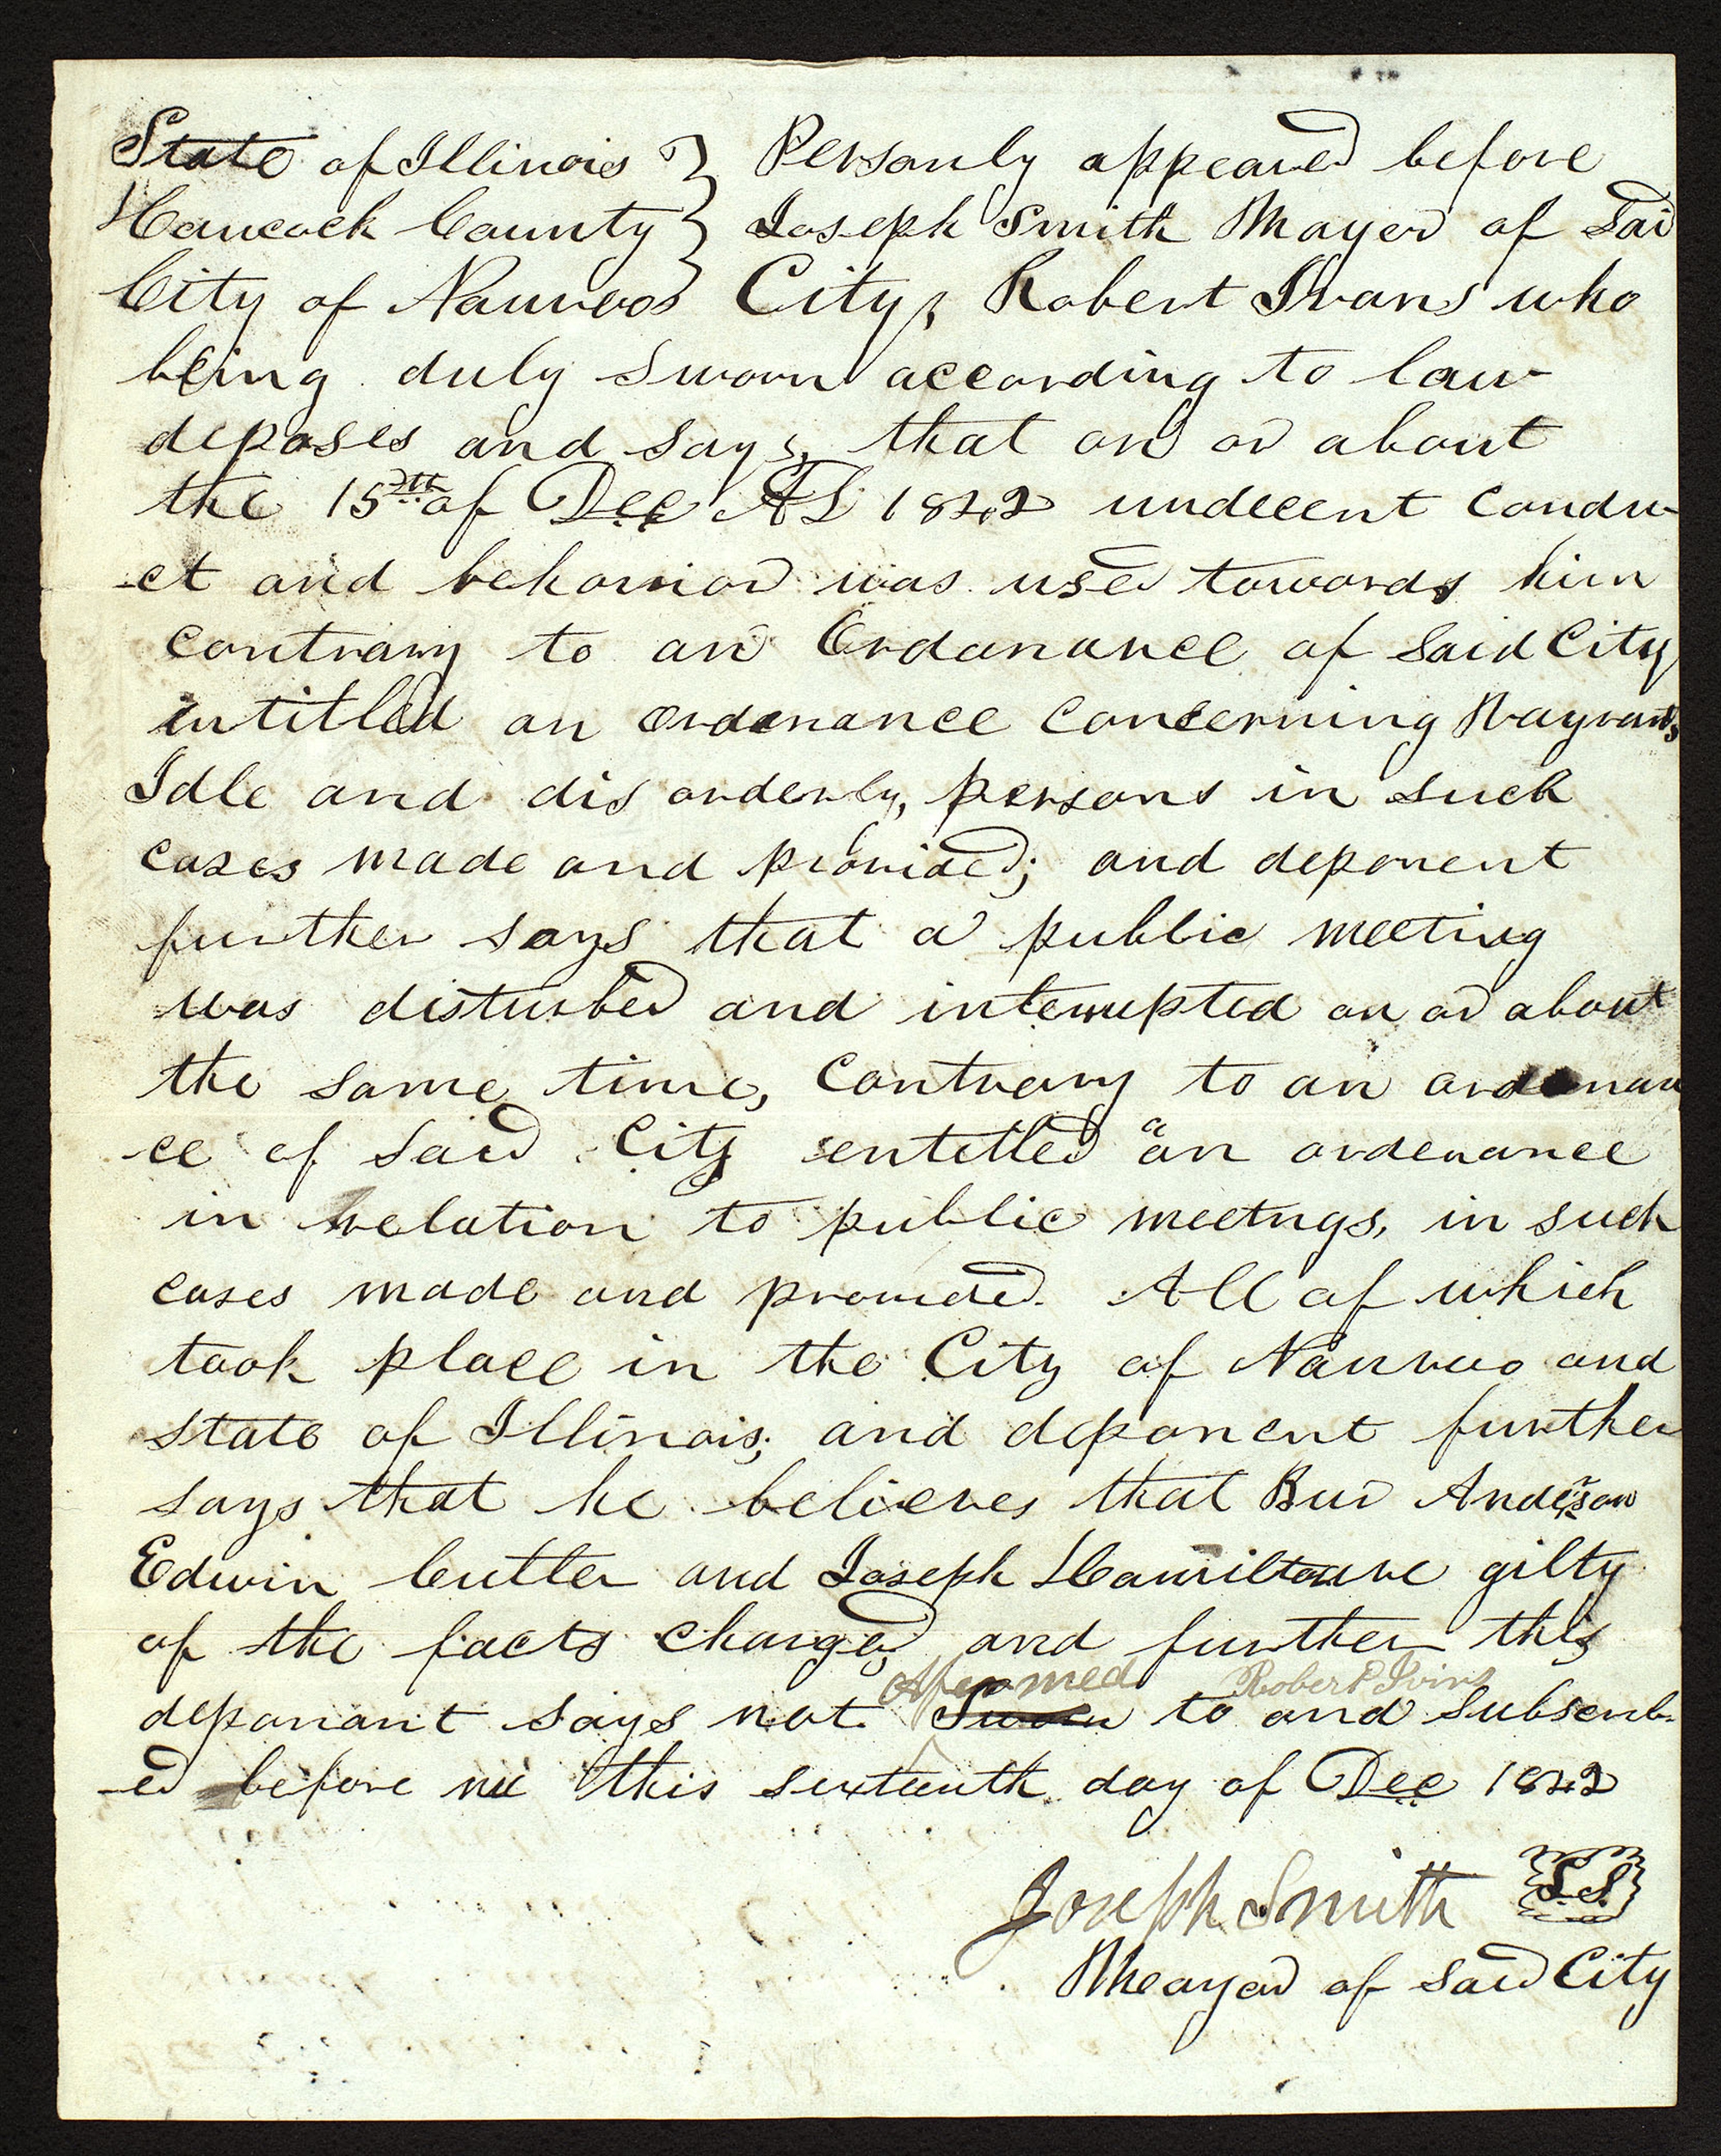 State of Illinois } Personly appeared before
Hancock County } Joseph Smith Mayer of Said
City of Nauvoo } City, Robert Ivans who
being duly Sworn according to law
deposes and says, that on or about
the 15th of Dec AD 1842 undecent Condu-
-ct and behavior was used towards him
contrary to an Ordanance of Said City
intitled an ordenance concerning Vagrants,
Idle and dis orderly, persons in such
cases made and provided; and deponent
further says that a public meeting
was disturbed and interrupted on or about
the same time, Contrary to an ordenan
-ce of Said City entetled "an ordenance
in relation to public meetngs, in such
cases made and provided. All of which
took place in the City of Nauvoo and
State of Illinois; and deponent further
says that he believes that Bur Anderson
Edwin Cutler and Joseph Hamilton are gilty
of the facts charged and further this
Affermed Robert Ivins
deponant says not. Sworn to and Subscrib-
-ed before me this sixteenth day of Dec 1842
Joseph Smith L.S.
Meayor of said City